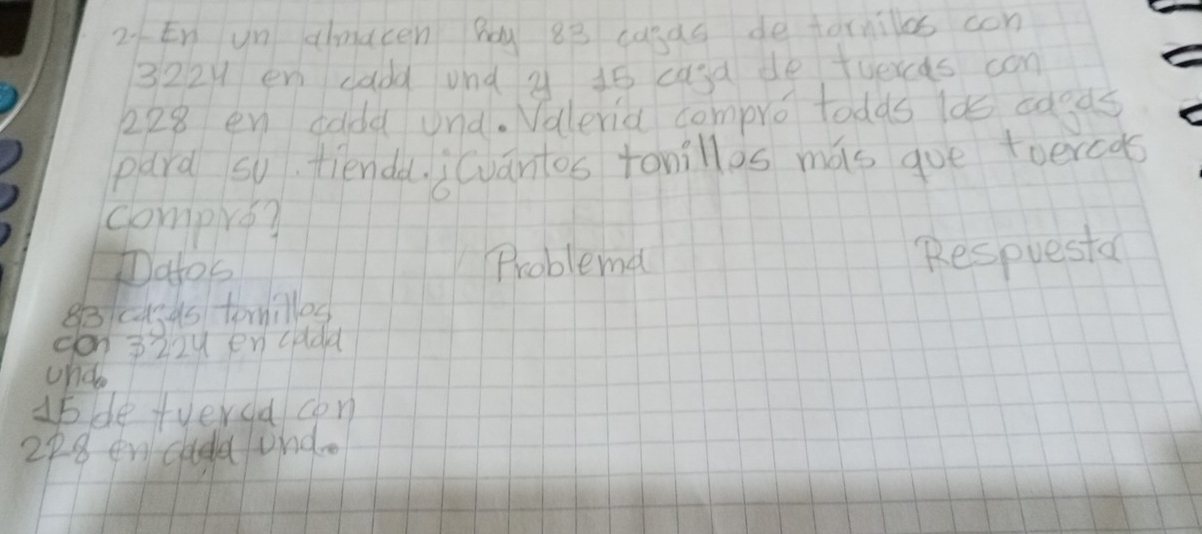 2- En un almacen hay 83 cajas de tornillos con
3224 en cada una y 15 caja de tuercas con
228 en cada una. Valeria compró todas las cajas
para su tienda. ¿Cuántos tonillos más que tuercas
compró?
Datos Problema Respuesta
83 cajas tornillos
con 3224 en cada
una.
15 de tuerca con
228 en cada una.